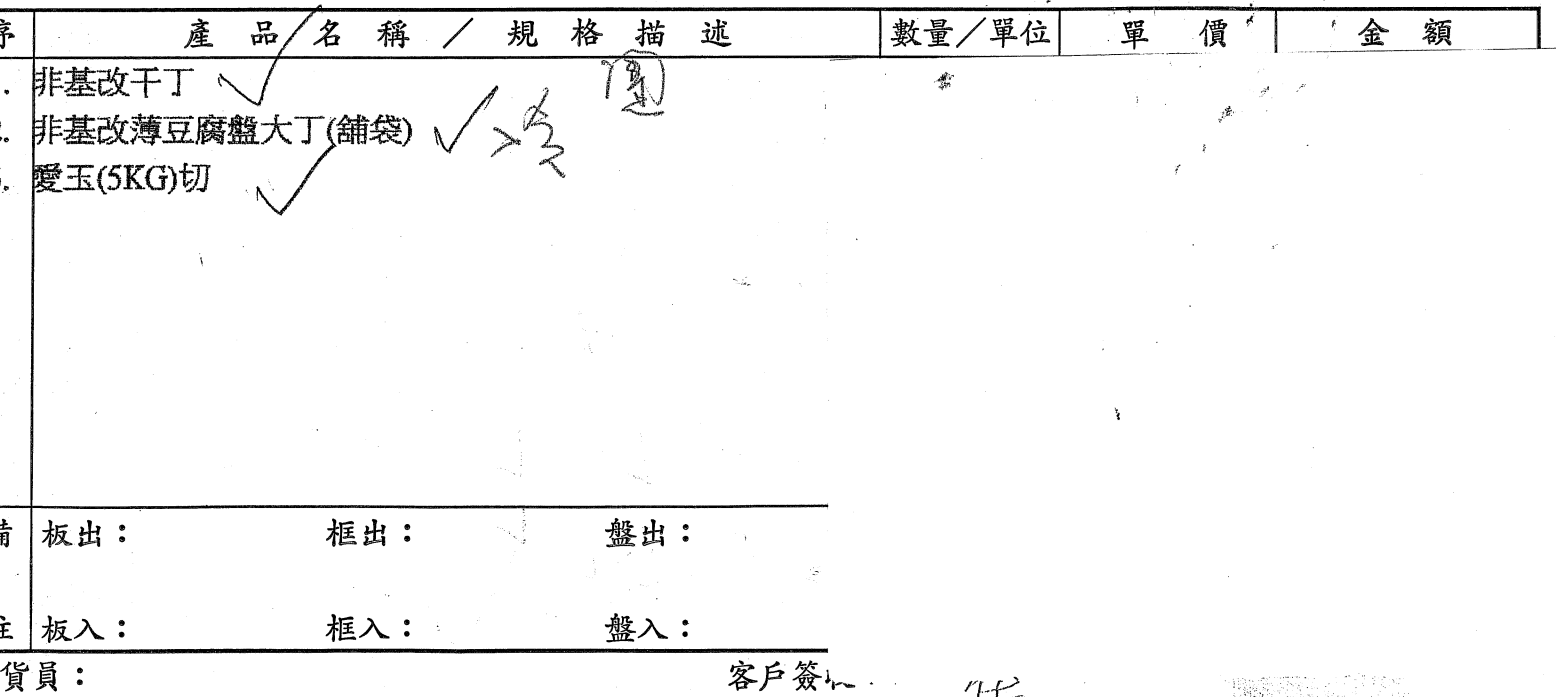 序 產品名稱／規格描述 數量／單位 單價 金額
. 非基改干丁
. 非基改薄豆腐盤大丁(舖袋)
. 愛玉(5KG)切
備 板出： 框出： 盤出：
註 板入： 框入： 盤入：
貨員： 客戶簽